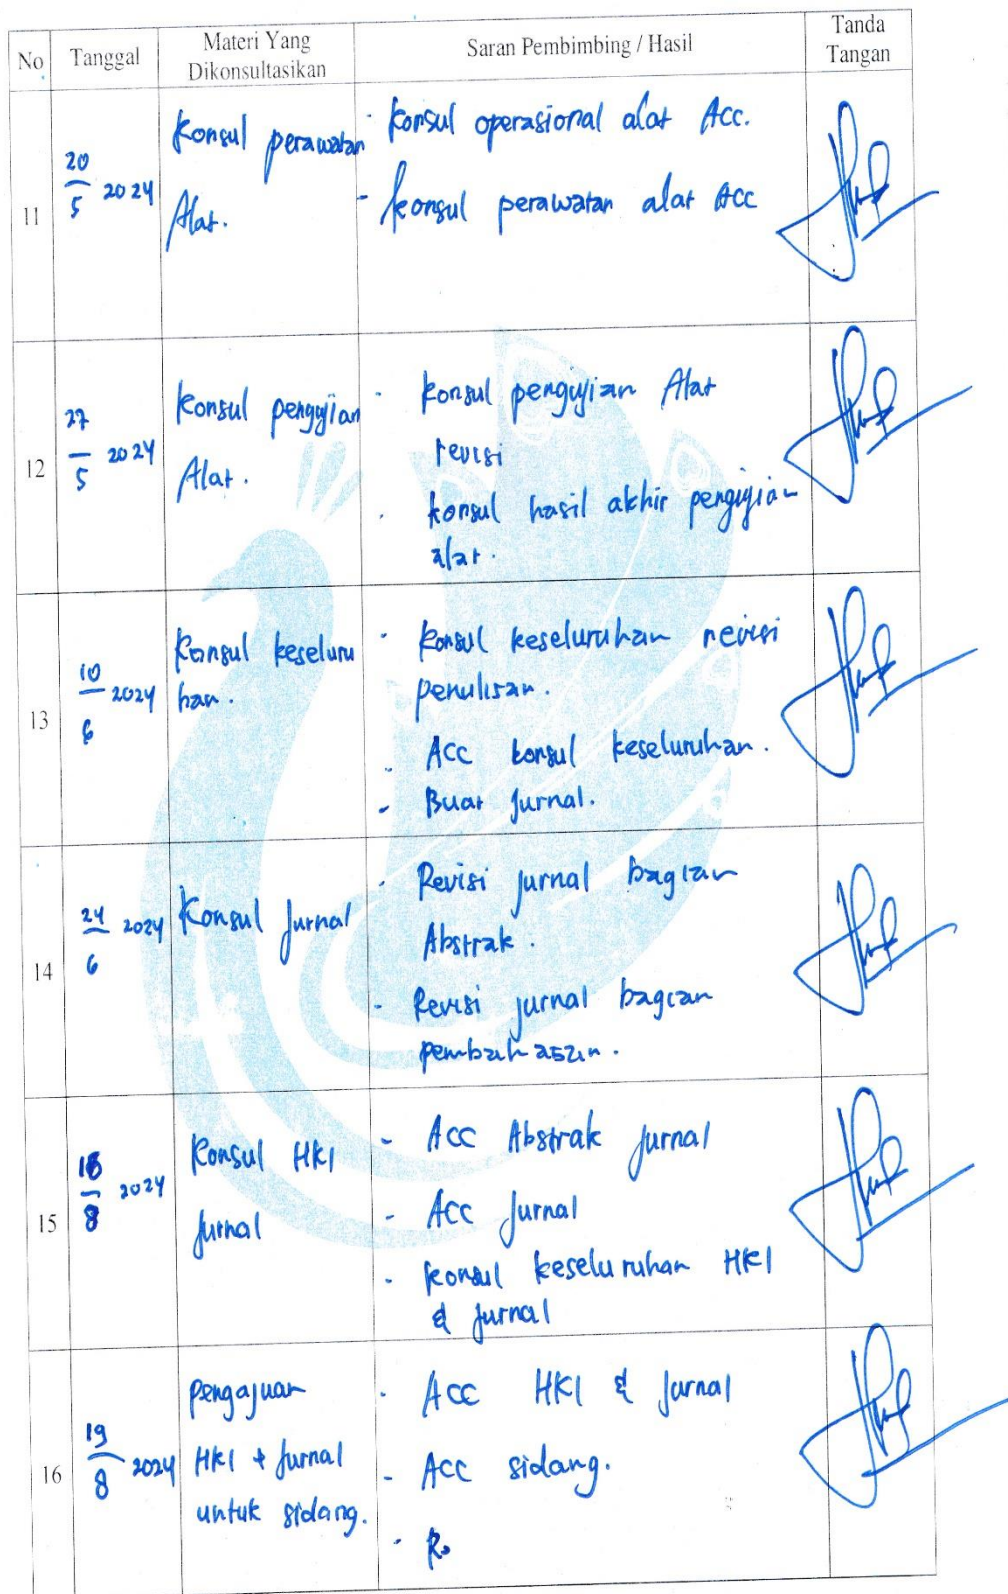 No Tanggal Materi Yang Dikonsultasikan Saran Pembimbing / Hasil Tanda Tangan
11
20/5 2024
Konsul perawatan
Alat.
- Konsul operasional alat Acc.
- Konsul perawatan alat Acc
12
27/5 2024
Konsul pengujian
Alat.
- Konsul pengujian Alat
revisi
- konsul hasil akhir pengujian
alat.
13
10/6 2024
Konsul keseluru
han.
- Konsul keseluruhan revisi
penulisan.
- ACC konsul keseluruhan.
- Buat Jurnal.
14
24/6 2024
Konsul Jurnal
- Revisi jurnal bagian
Abstrak.
- Revisi jurnal bagian
pembahasan.
15
/8 2024
Konsul HKI
Jurnal
- ACC Abstrak jurnal
- ACC Jurnal
- Konsul keseluruhan HKI
& Jurnal
16
19/8 2024
pengajuan
HKI + Jurnal
untuk sidang.
- ACC HKI & Jurnal
- ACC sidang.